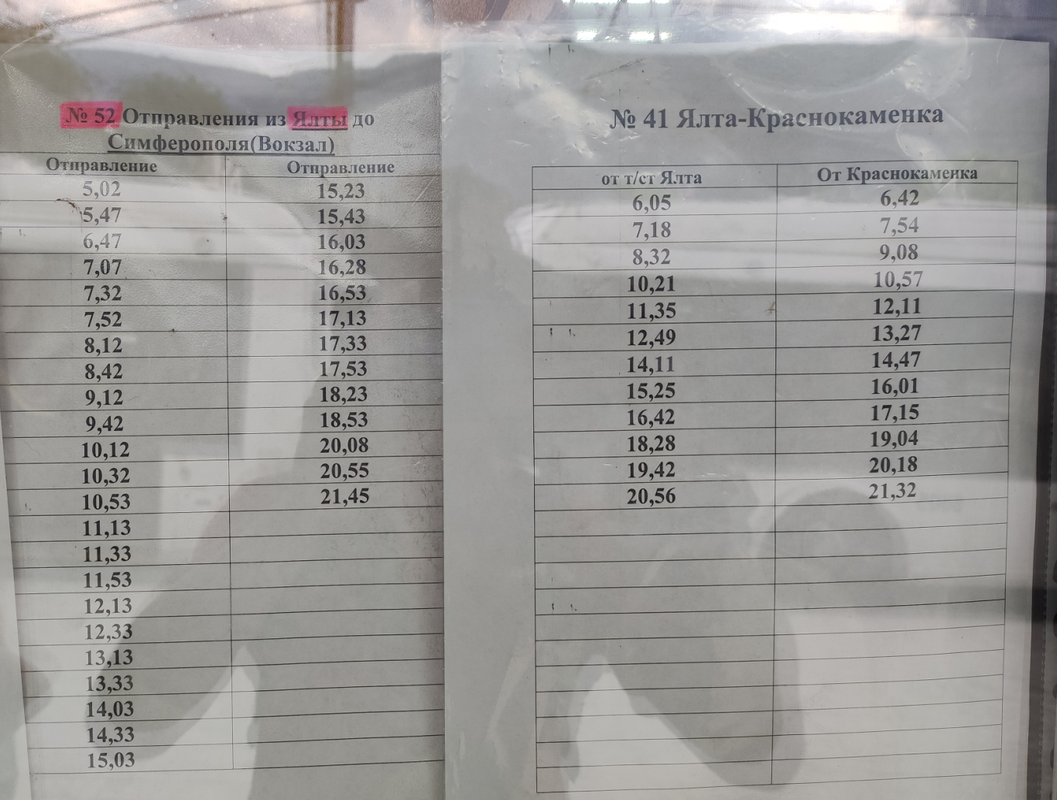 № 52 Отправления из Ялты до
Симферополя(Вокзал)
Отправление Отправление
5,02 15,23
5,47 15,43
6,47 16,03
7,07 16,28
7,32 16,53
7,52 17,13
8,12 17,33
8,42 17,53
9,12 18,23
9,42 18,53
10,12 20,08
10,32 20,55
10,53 21,45
11,13
11,33
11,53
12,13
12,33
13,13
13,33
14,03
14,33
15,03
№ 41 Ялта-Краснокаменка
от т/ст Ялта От Краснокаменка
6,05 6,42
7,18 7,54
8,32 9,08
10,21 10,57
11,35 12,11
12,49 13,27
14,11 14,47
15,25 16,01
16,42 17,15
18,28 19,04
19,42 20,18
20,56 21,32